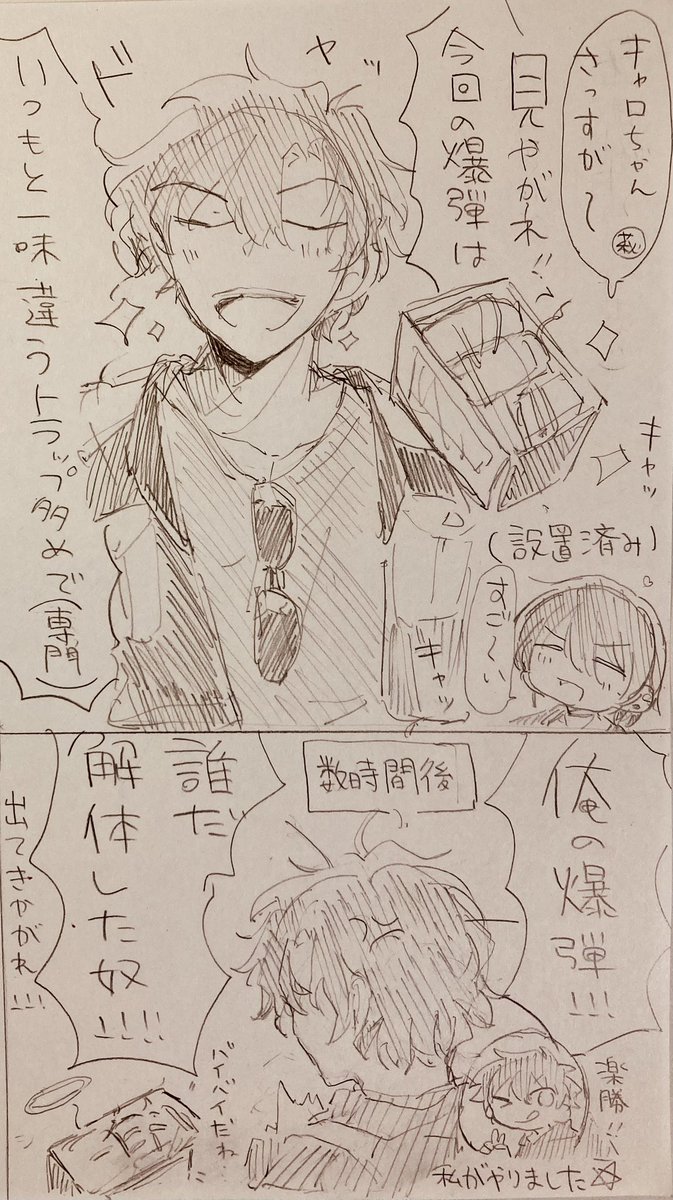 キャロちゃん
さっすが〜
萩
見やがれ!!
今回の爆弾は
ヤッ
ド
いつもと一味違うトラップ多めで(専門)
キャッ
(設置済み)
すご〜い
キャッ
数時間後
俺の爆弾!!!
誰だ
解体した奴!!!!
出てきやがれ!!!
バイバイだね…
楽勝!!
私がやりました☆